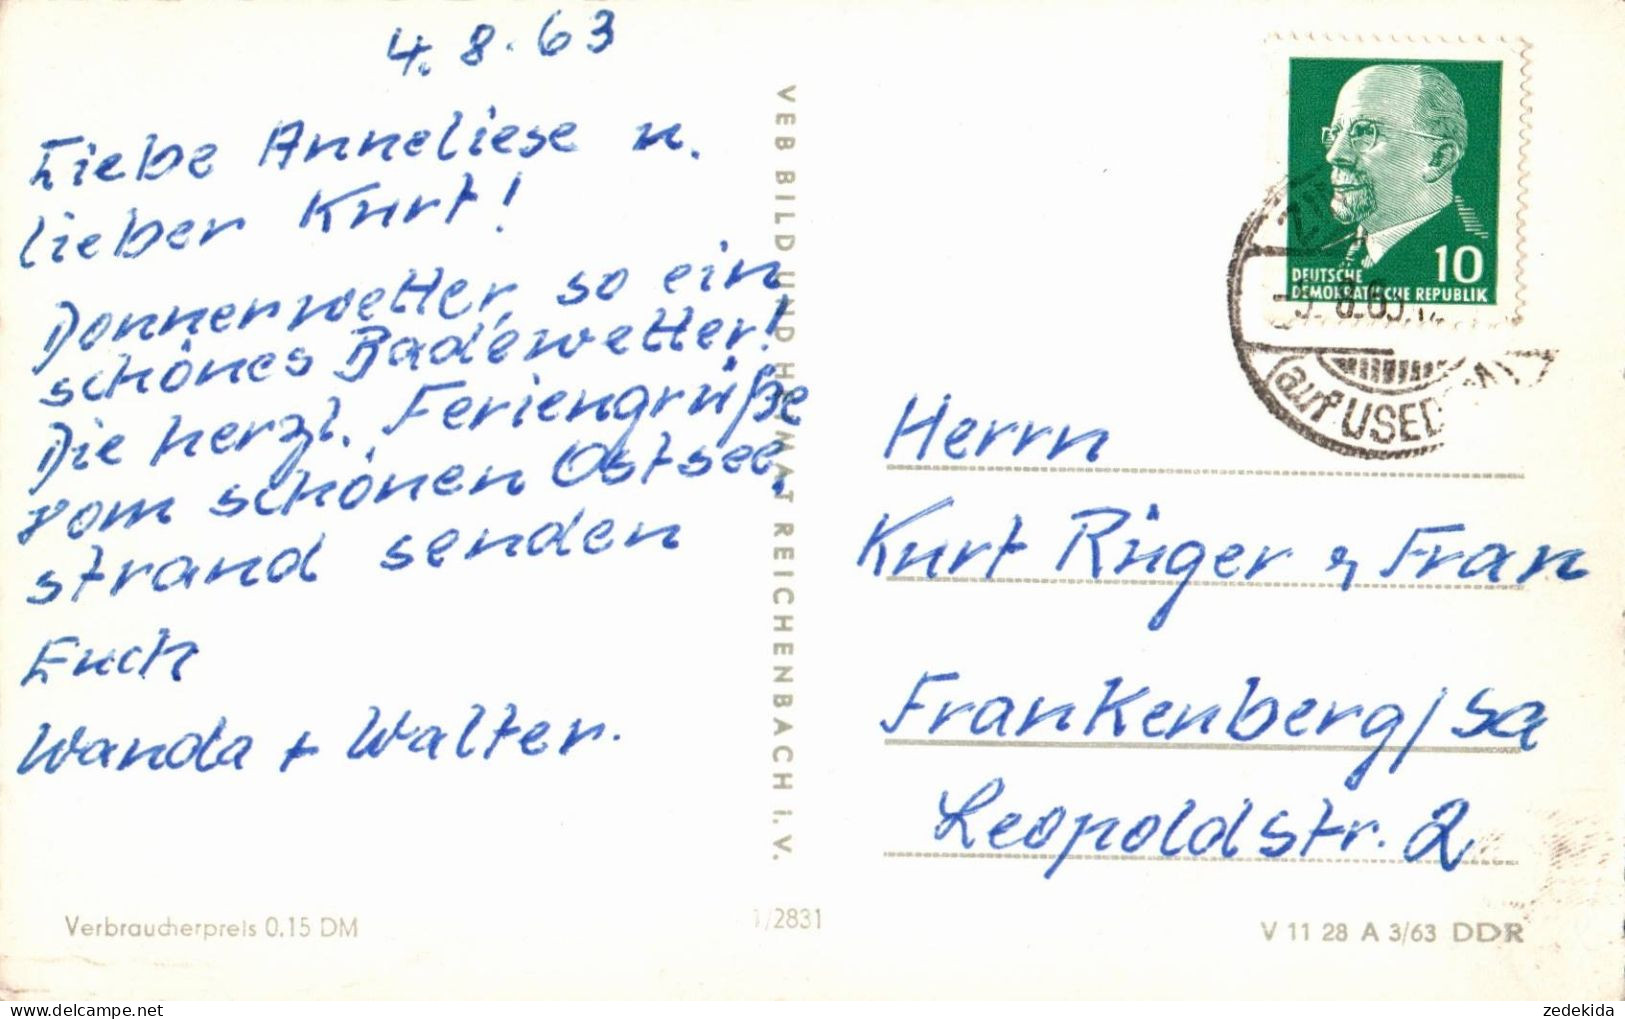 4.8.63
Liebe Anneliese u.
lieber Kurt!
Donnerwetter, so ein
schönes Badewetter!
Die herzl. Feriengrüße
vom schönen Ostsee,
strand senden
Euch
Wanda + Walter.
VEB BILD UND HEIMAT REICHENBACH i. V.
DEUTSCHE
DEMOKRATISCHE REPUBLIK
10
(auf USEDOM)
Herrn
Kurt Rüger u Frau
Frankenberg/Sa
Leopoldstr. 2
Verbraucherpreis 0,15 DM
1/2831
V 11 28 A 3/63 DDR
zedekida